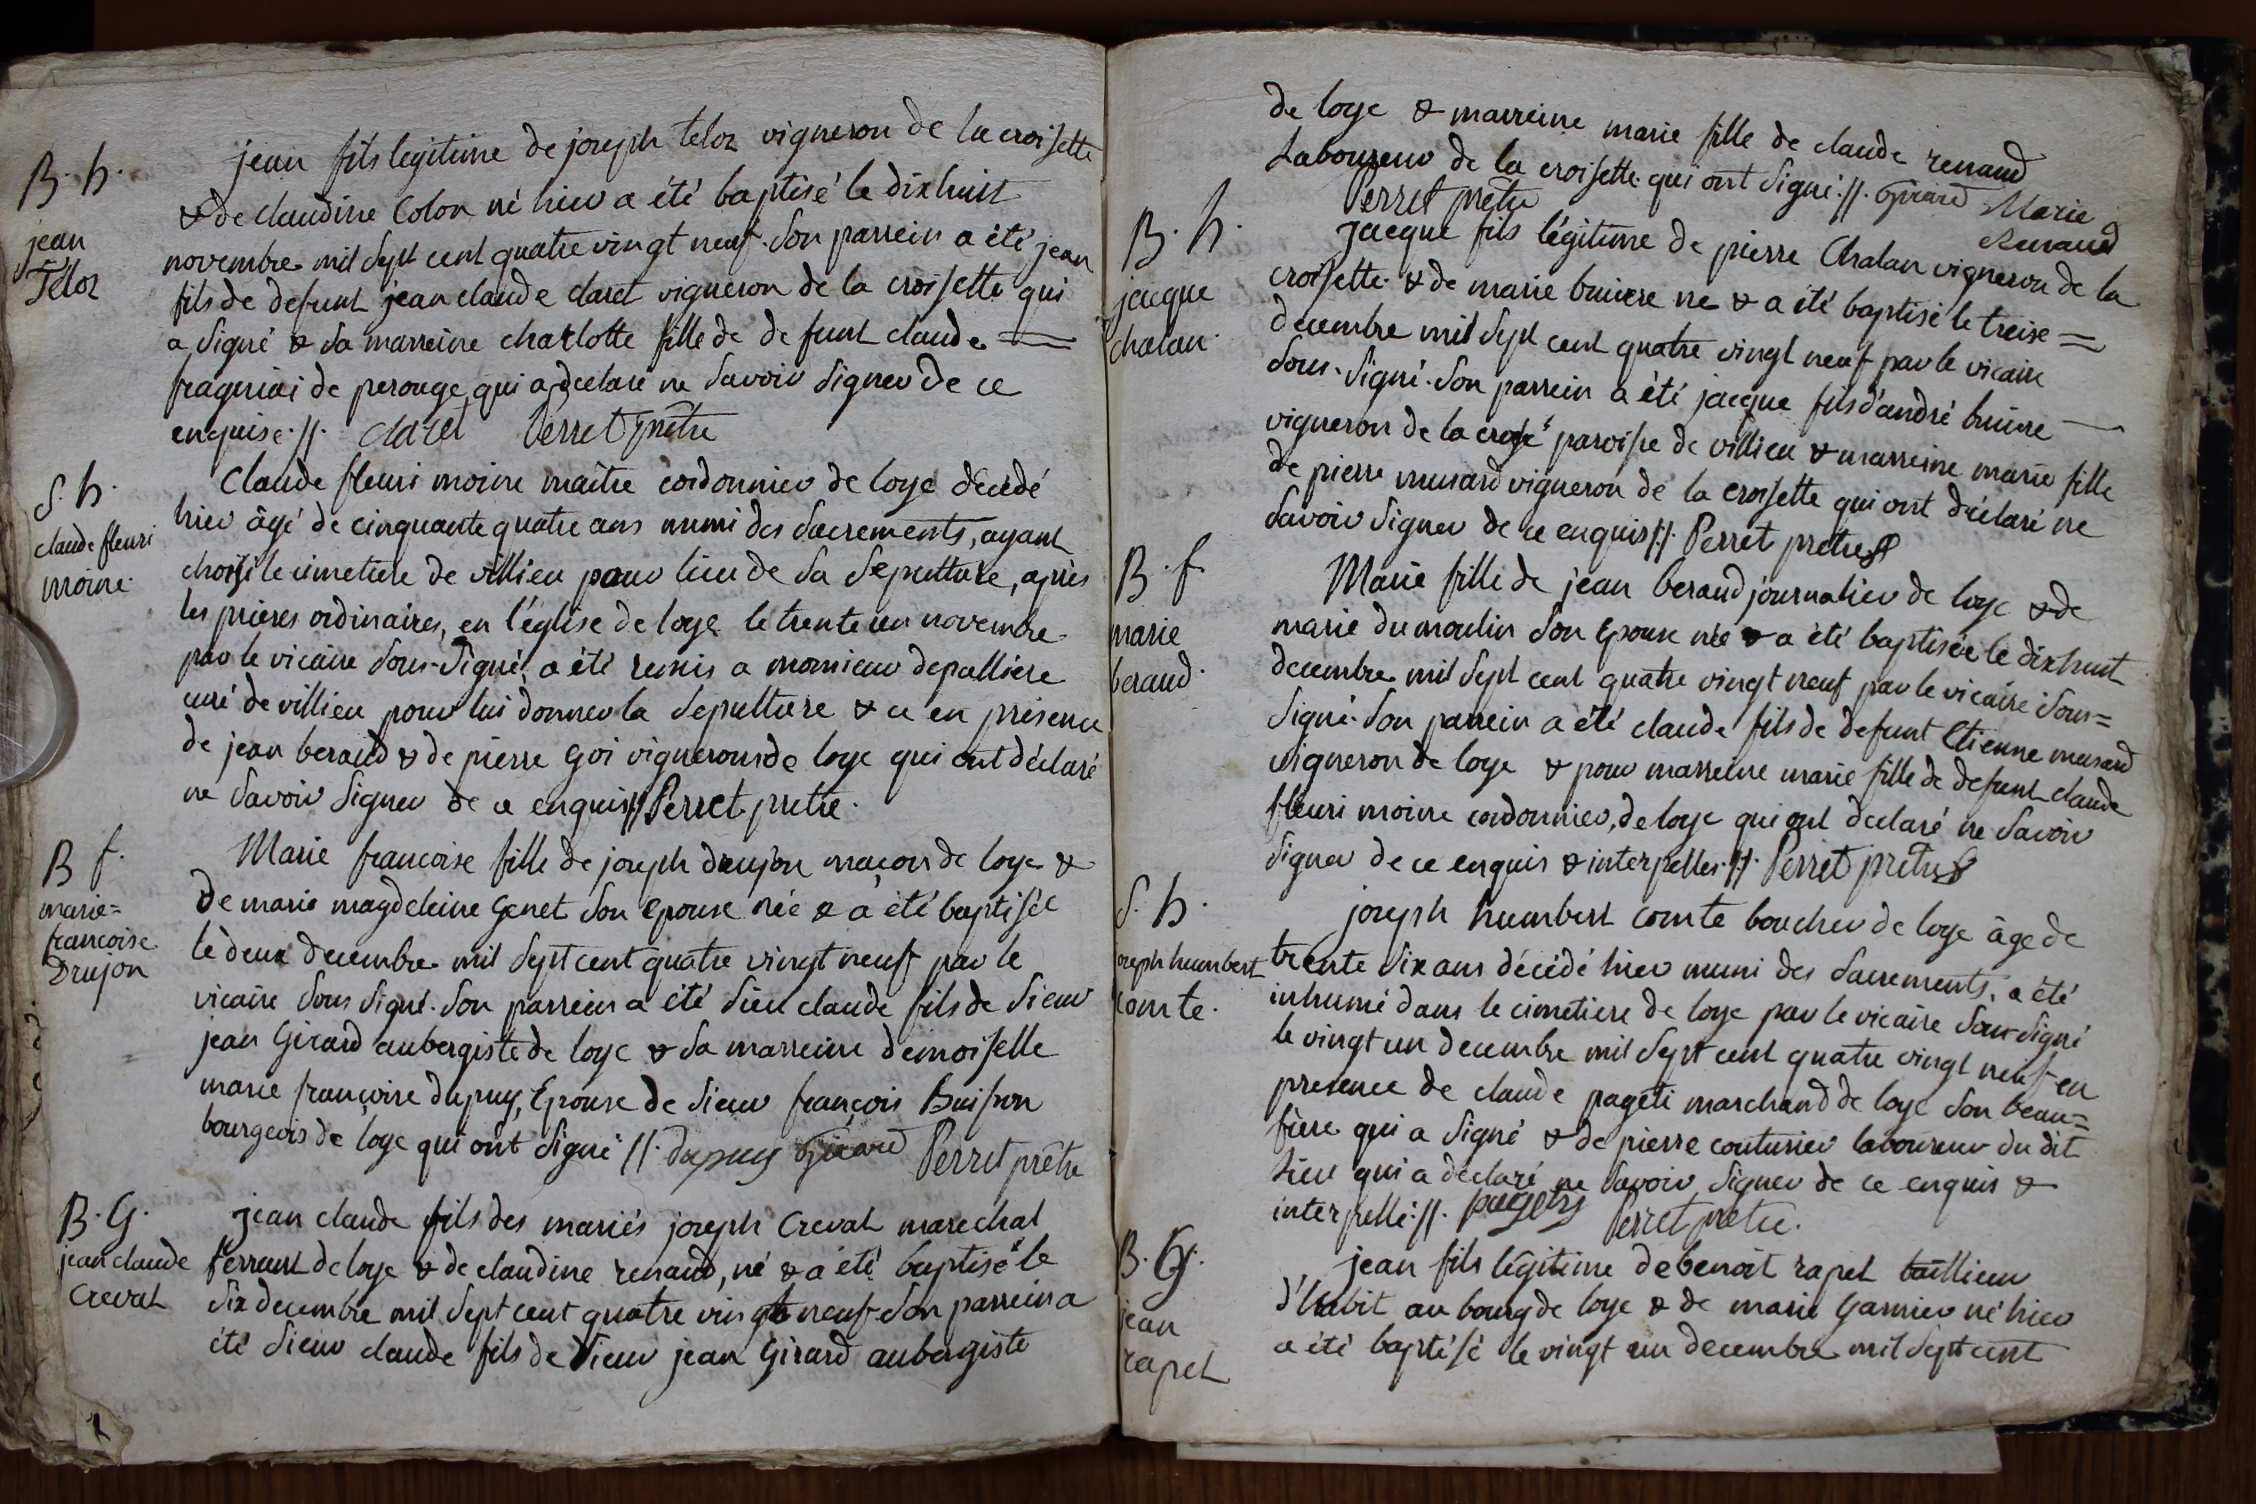 B. h.
jean
Téloz
jean fils legitime de joseph teloz vigneron de la croisette
& de claudine Colon né hier a été baptisé le dixhuit
novembre mil sept cent quatre vingt neuf. Son parrein a été jean
fils de defunt jean claude claret vigneron de la croisette qui
a signé & sa marreine charlotte fille de defunt claude =
de perouge qui a déclaré ne savoir signer de ce
enquise.//. claret Perret prêtre
S. h.
claude fleuri
moine.
Claude fleuri moine maître cordonnier de loye décédé
hier âgé de cinquante quatre ans muni des sacrements, ayant
choisi le cimetiere de villieu pour lieu de sa sepulture, après
les prieres ordinaires, en l'église de loye le trente un novembre
par le vicaire sous-signé, a été remis a monsieur depalliere
curé de villieu pour lui donner la sepulture & ce en présence
de jean beraud & de pierre Goi vignerons de loye qui ont déclaré
ne savoir signer de ce enquis// Perret prêtre.
B f.
marie=
francoise
Drujon
Marie francoise fille de joseph drujon maçon de loye &
de marie magdeleine Genet son epouse née & a été baptisée
le deux decembre mil sept cent quatre vingt neuf par le
vicaire sous signé. Son parrein a été sieu claude fils de sieur
jean Girard aubergiste de loye & sa marreine demoiselle
marie françoise dupuy, Epouse de sieur françois Buisson
bourgeois de loye qui ont signé //. dupuy Girard Perret prêtre
B. G.
jean claude
Creval
jean claude fils des mariés joseph Creval marechal
ferrant de loye & de claudine renaud, né & a été baptisé le
six decembre mil sept cent quatre vingt neuf. Son parrein a
été sieur claude fils de sieur jean Girard aubergiste
de loye & marreine marie fille de claude renaud
Laboureur de la croisette qui ont signé.//. Girard Marie
Perret prêtre Renaud
B. h.
jacque
chalan.
jacque fils légitime de pierre Chalan vigneron de la
croisette & de marie né & a été baptisé le treise =
decembre mil sept cent quatre vingt neuf par le vicaire
sous-signé. Son parrein a été jacque fils d'andré
vigneron de la paroisse de villieu & marreine marie fille
de pierre musard vigneron de la croisette qui ont déclaré ne
savoir signer de ce enquis//. Perret prêtre
B. f
marie
beraud.
Marie fille de jean beraud journalier de loye & de
marie dumoulin son Epouse née & a été baptisée le dixhuit
decembre mil sept cent quatre vingt neuf par le vicaire sous=
signé. Son parrein a été claude fils de defunt Etienne musard
vigneron de loye & pour marreine marie fille de defunt claude
fleuri moine cordonnier, de loye qui ont declaré ne savoir
signer de ce enquis & interpelles.//. Perret prêtre
S. h.
joseph humbert
comte.
joseph humbert comte boucher de loye âge de
trente six ans décédé hier muni des sacrements, a été
inhumé dans le cimetiere de loye par le vicaire sous-signé
le vingt un decembre mil sept cent quatre vingt neuf en
presence de claude pageti marchand de loye son beau=
frere qui a signé & de pierre couturier laboureur du dit
Lieu qui a déclaré ne savoir signer de ce enquis &
interpellé.//. pagety Perret prêtre.
B. G.
jean
rapet
jean fils légitime de benoit rapet taillieur
d'habit au bourg de loye & de marie Garnier né hier
a été baptisé le vingt un decembre mil sept cent